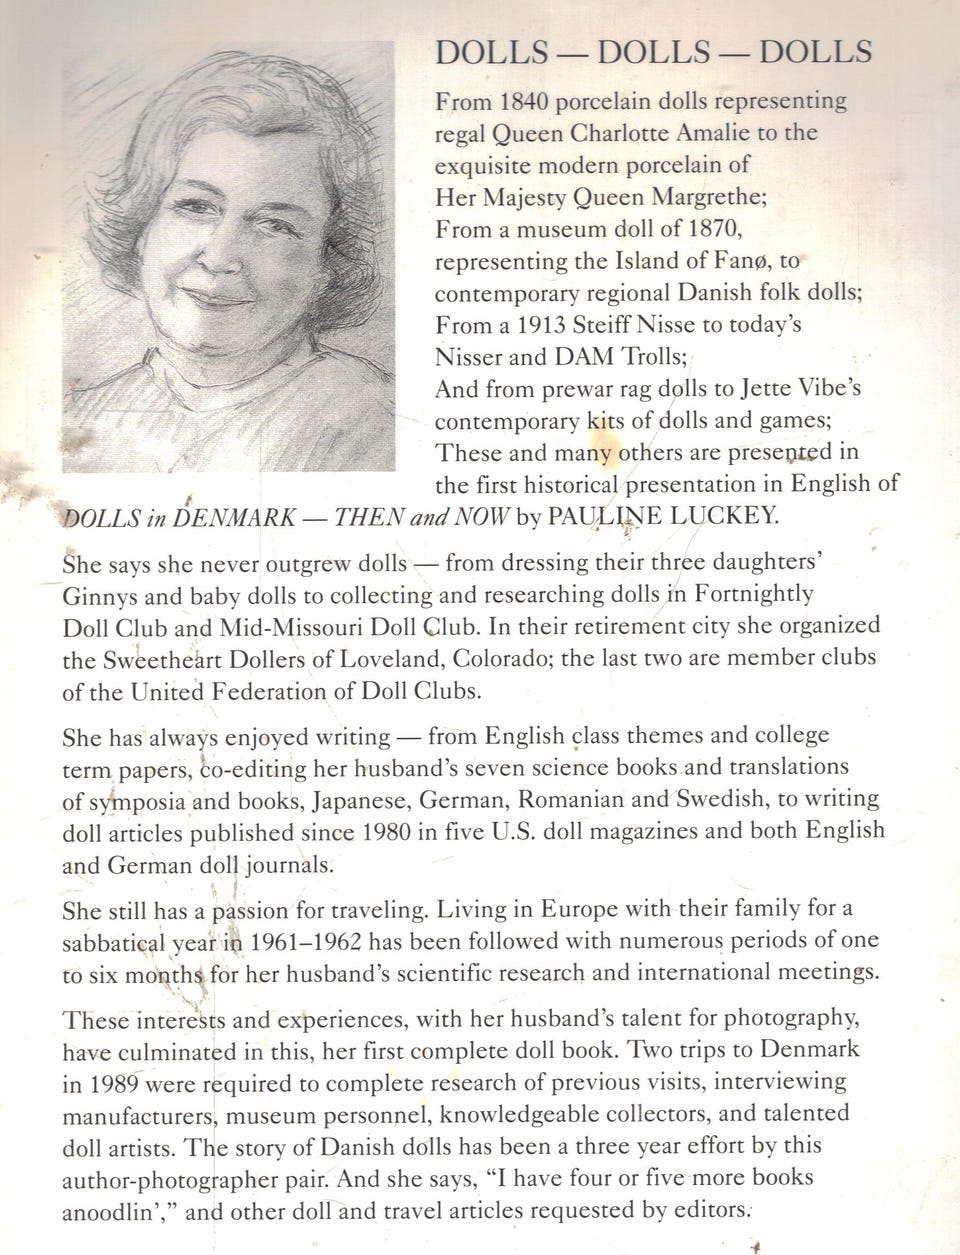 DOLLS — DOLLS — DOLLS
From 1840 porcelain dolls representing
regal Queen Charlotte Amalie to the
exquisite modern porcelain of
Her Majesty Queen Margrethe;
From a museum doll of 1870,
representing the Island of Fanø, to
contemporary regional Danish folk dolls;
From a 1913 Steiff Nisse to today's
Nisser and DAM Trolls;
And from prewar rag dolls to Jette Vibe's
contemporary kits of dolls and games;
These and many others are presented in
the first historical presentation in English of
DOLLS in DENMARK — THEN and NOW by PAULINE LUCKEY.
She says she never outgrew dolls — from dressing their three daughters'
Ginnys and baby dolls to collecting and researching dolls in Fortnightly
Doll Club and Mid-Missouri Doll Club. In their retirement city she organized
the Sweetheart Dollers of Loveland, Colorado; the last two are member clubs
of the United Federation of Doll Clubs.
She has always enjoyed writing — from English class themes and college
term papers, co-editing her husband's seven science books and translations
of symposia and books, Japanese, German, Romanian and Swedish, to writing
doll articles published since 1980 in five U.S. doll magazines and both English
and German doll journals.
She still has a passion for traveling. Living in Europe with their family for a
sabbatical year in 1961–1962 has been followed with numerous periods of one
to six months for her husband's scientific research and international meetings.
These interests and experiences, with her husband's talent for photography,
have culminated in this, her first complete doll book. Two trips to Denmark
in 1989 were required to complete research of previous visits, interviewing
manufacturers, museum personnel, knowledgeable collectors, and talented
doll artists. The story of Danish dolls has been a three year effort by this
author-photographer pair. And she says, “I have four or five more books
anoodlin',” and other doll and travel articles requested by editors.